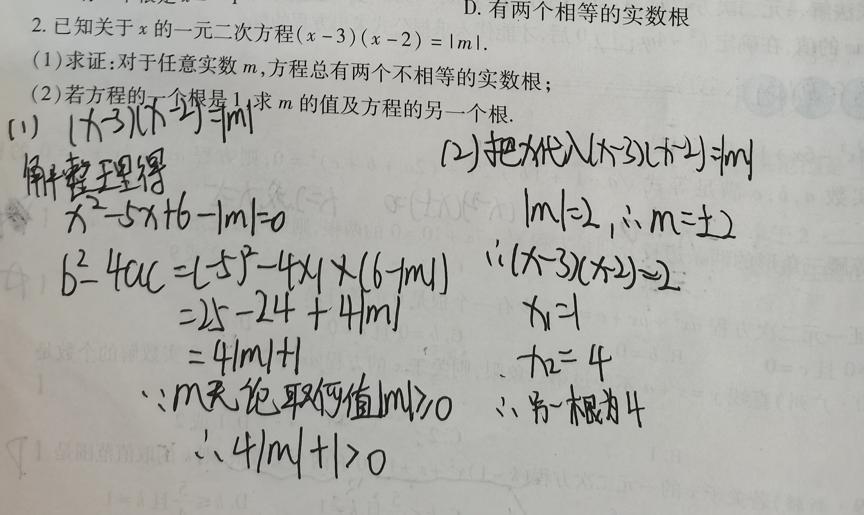 D. 有两个相等的实数根
2. 已知关于 x 的一元二次方程(x-3)(x-2)=|m|.
(1)求证:对于任意实数 m,方程总有两个不相等的实数根;
(2)若方程的一个根是 1,求 m 的值及方程的另一个根.
(1) (x-3)(x-2)=|m|
解:整理得
x²-5x+6-|m|=0
b²-4ac=(-5)²-4×1×(6-|m|)
=25-24+4|m|
=4|m|+1
∵m无论取何值|m|≥0
∴4|m|+1>0
(2)把x代入(x-3)(x-2)=|m|
|m|=2,∴m=±2
∵(x-3)(x-2)=2
x₁=1
x₂=4
∴另一根为4